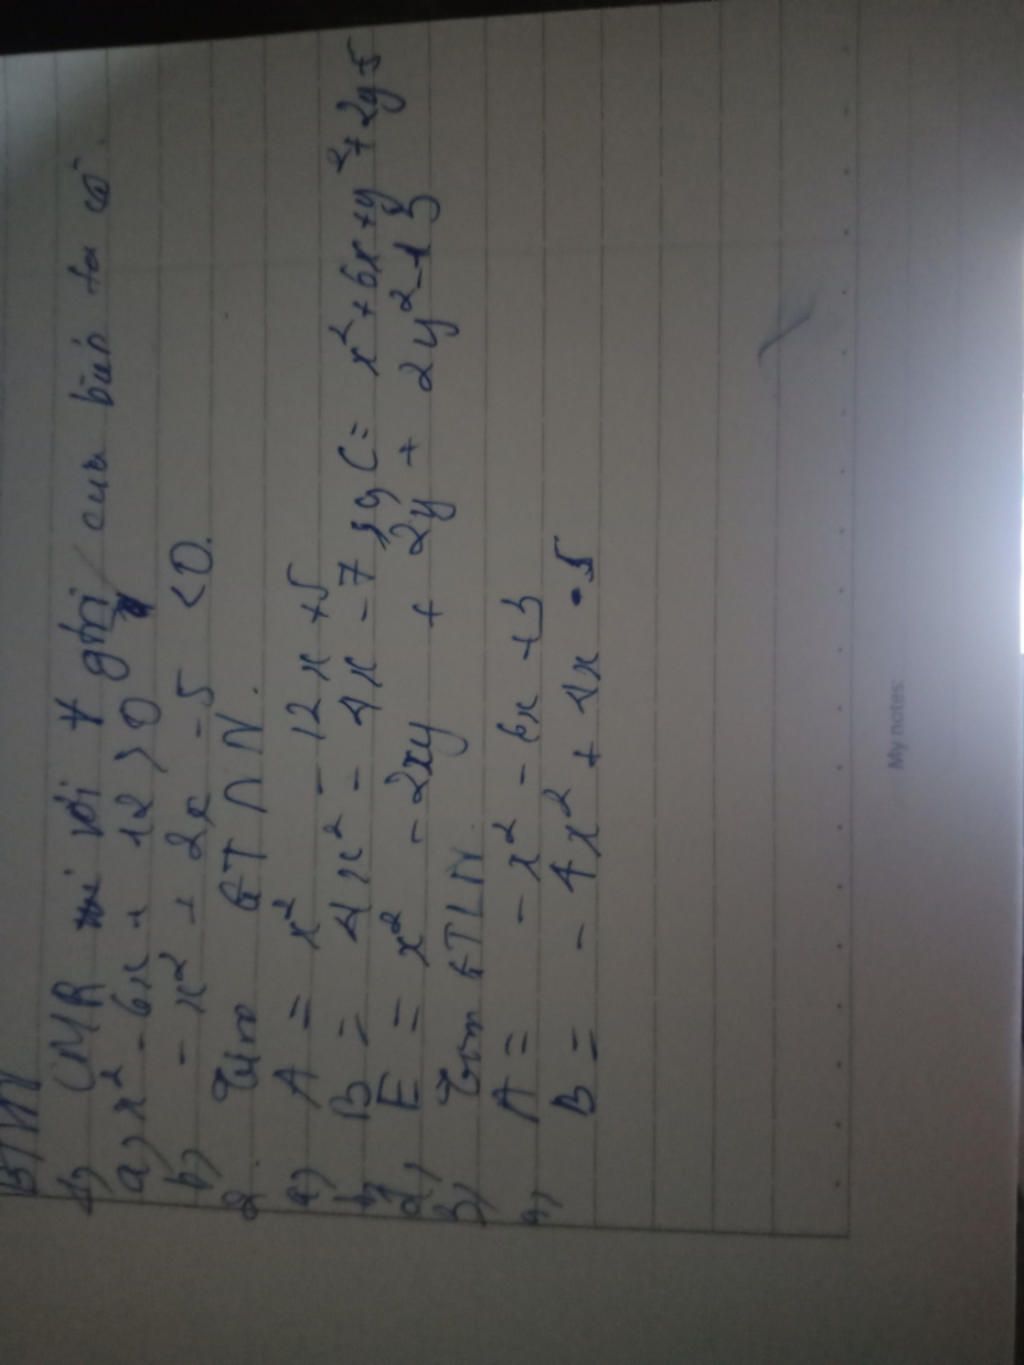 BTVN
1) CMR với ∀ gtrị của biến ta có
a) x² - 6x + 12 > 0
b) - x² + 2x - 5 < 0.
2. Tìm GTNN.
a) A = x² - 12x + 5
b) B = 4x² - 4x - 7 C = x² + 6x + y² + 2y 5
d) E = x² - 2xy + 2y + 2y² - 13
3) Tìm GTLN
a) A = - x² - 6x + 3
B = - 4x² + 4x - 5
My notes: